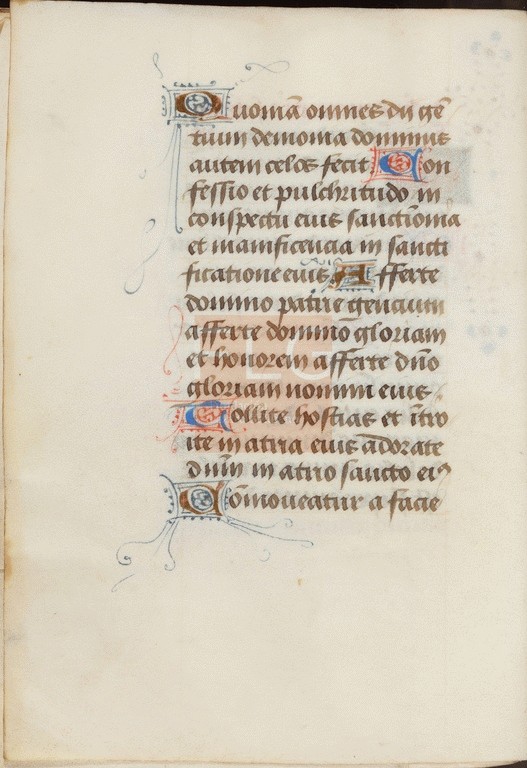 Quomā omnes dij gē
tium demonia dominus
autem celos fecit Con
fessio et pulchritudo in
conspectu eius sanctimonia
et manificencia in sancti
ficatione eius Afferte
domino patrie gencium
afferte domino gloriam
et honorem afferte dn̄o
gloriam nomini eius.
Tollite hostias et ītro
ite in atria eius adorate
dn̄m in atrio sancto eiꝰ
Cōmoueatur a facie